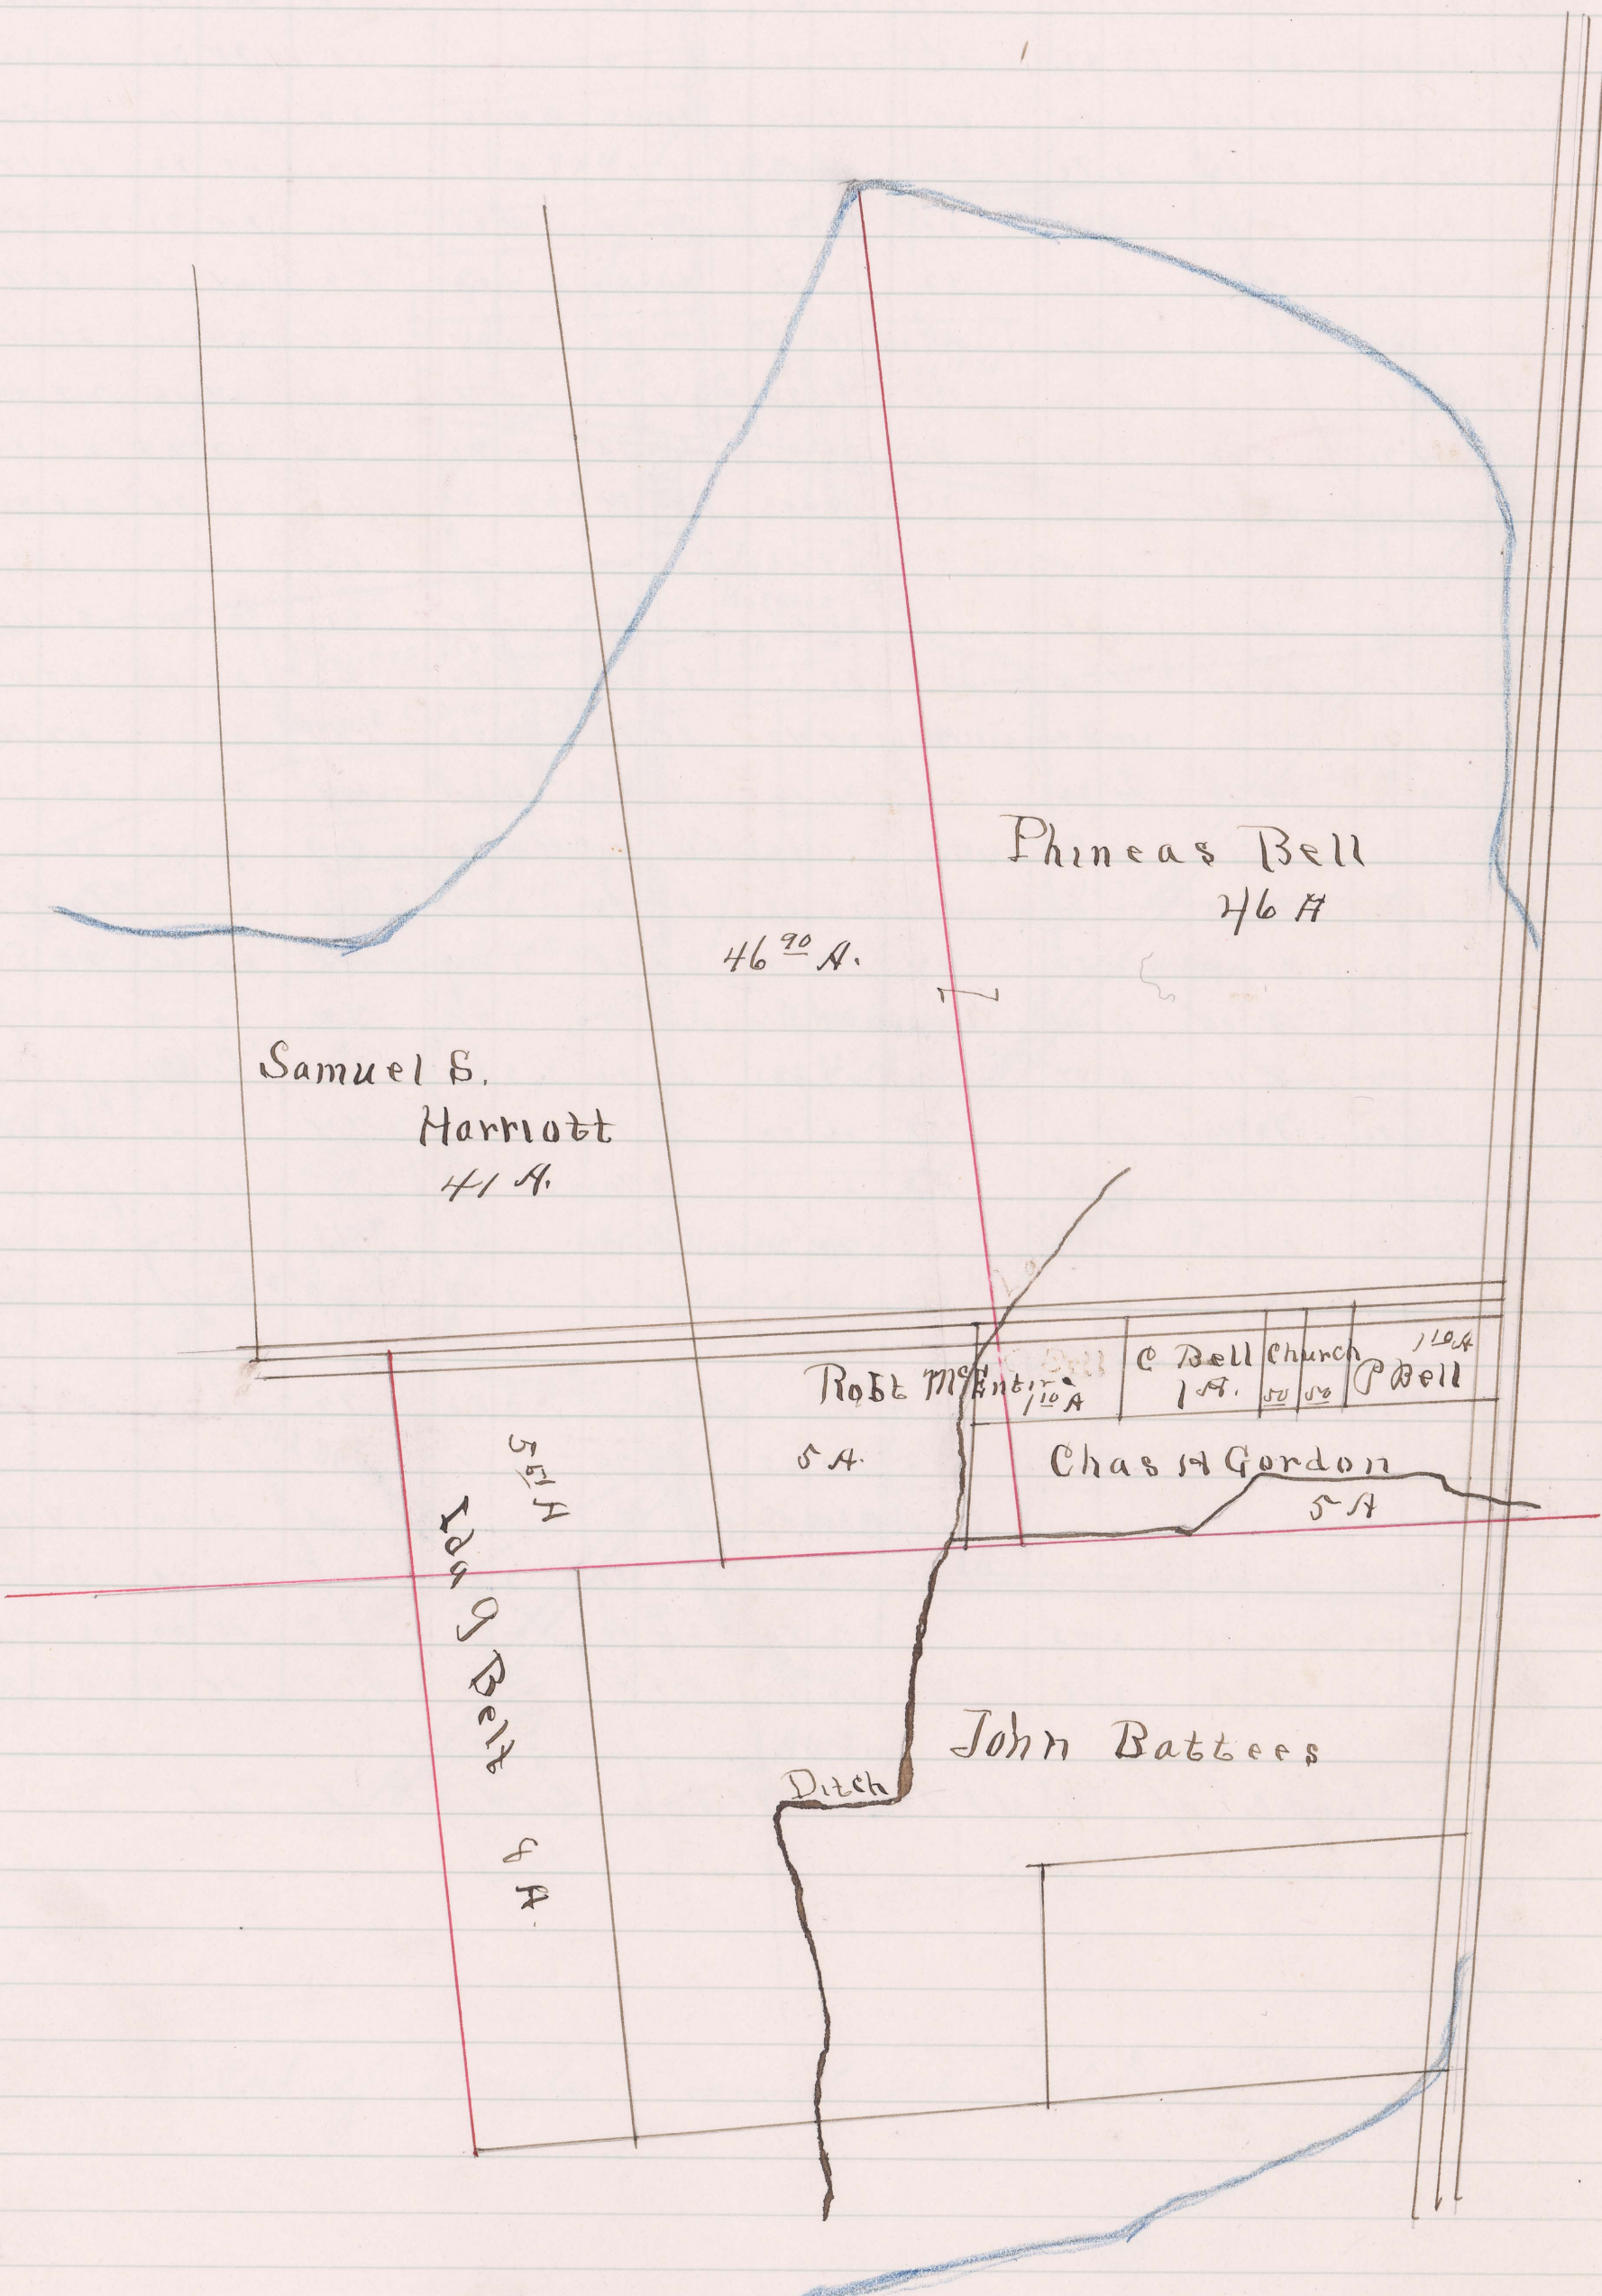 Phineas Bell
46 A
46 90 A.
Samuel S.
Harriott
41 A.
Robt McEntire
1 10 A
C Bell
1 A.
Church
50 50
1 10 A
P Bell
5 A.
Chas H Gordon
5 A
Ida J Belt
8 A.
John Battees
Ditch